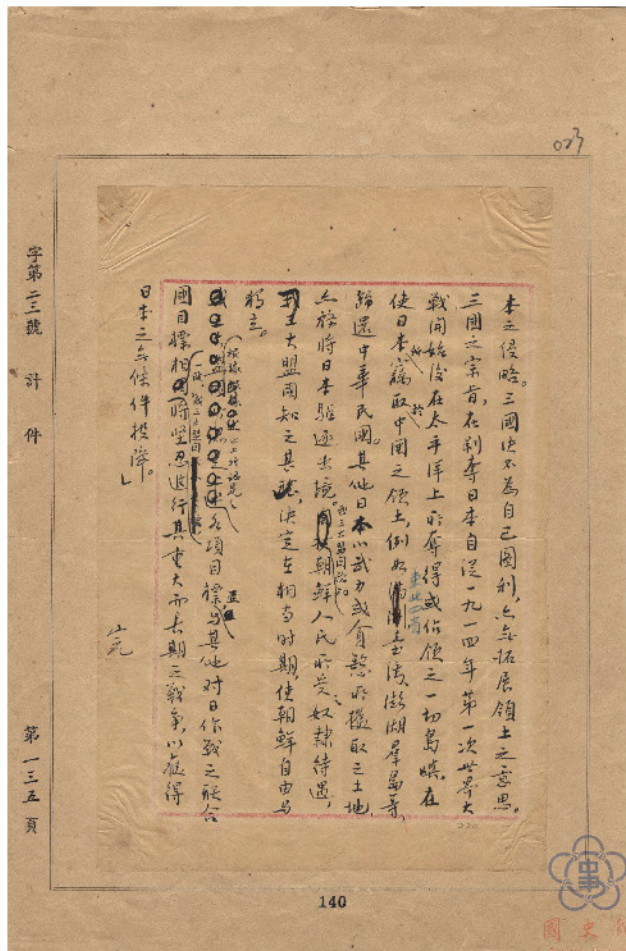 023
本之侵略。三國決不為自己圖利,亦無拓展領土之意思。
三國之宗旨,在剝奪日本自從一九一四年第一次世界大
戰開始後在太平洋上所奪得或佔領之一切島嶼,在
使日本所竊取於中國之領土,例如東北四省臺灣澎湖羣島等,
歸還中華民國。其他日本以武力或貪慾所攫取之土地,
亦務將日本驅逐出境。我三大盟國稔知朝鮮人民所受之奴隸待遇,
決定在相當時期,使朝鮮自由與
獨立。
根據以上所認定之各項目標並與其他對日作戰之聯合
國目標一致,我三大盟國將堅忍進行其重大而長期之戰爭,以獲得
日本之無條件投降。」
字第二三號 計 件
第一三五頁
140
國史